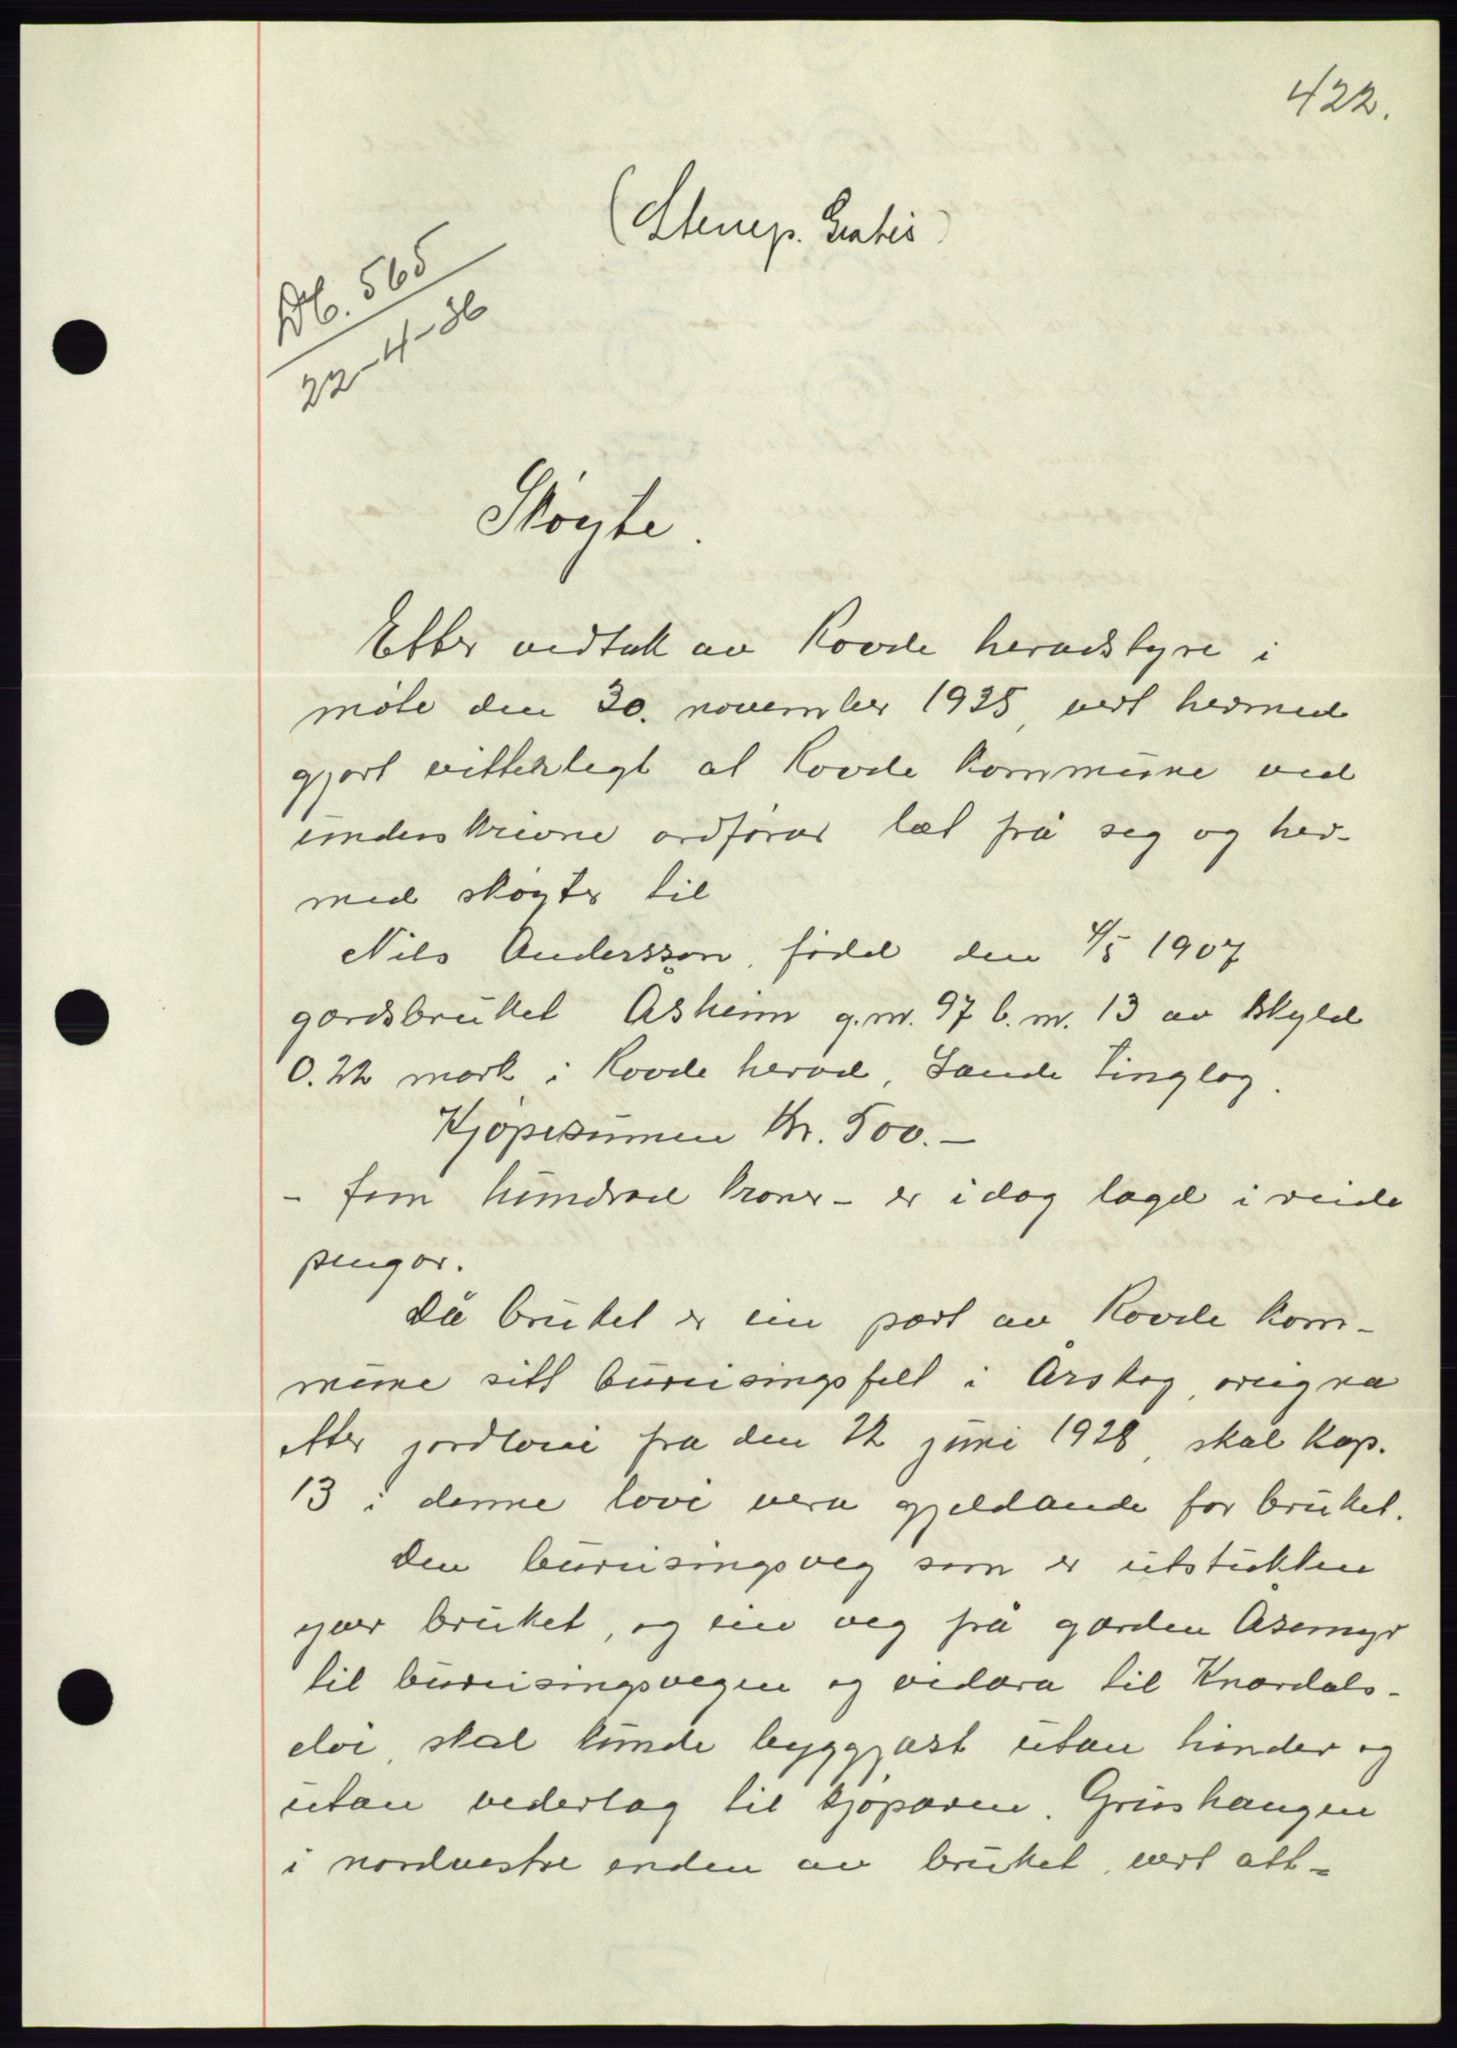 422.
(Stemp. Gratis)
Db. 565
22-4-36
Skøyte.
Etter vedtak av Rovde heradstyre i
møte den 30. november 1935, vert hermed
gjort vitterlegt at Rovde kommune ved
underskrivne ordførar læt frå seg og her-
med skøyter til
Nils Andersson, fødd den 4/5 1907
gardsbruket Åsheim g.nr. 97 b.nr. 13 av skyld
0.22 mark i Rovde herad, Sande tinglag.
Kjøpesumen Kr. 500.—
- fem hundrad kroner - er idag lagd i reide
pengar.
Då bruket er ein part av Rovde kom-
mune sitt bureisingsfelt i Årskog, oreigna
etter jordlovi fra den 22 juni 1928, skal kap.
13 i denne lovi vera gjeldande for bruket.
Den bureisingsveg som er utstukken
yver bruket, og ein veg frå garden Åsemyr
til bureisingsvegen og vidara til Knardals-
elvi, skal kunde byggjast utan hinder og
utan vederlag til kjøparen. Grushaugen
i nordvestre enden av bruket, vert att-